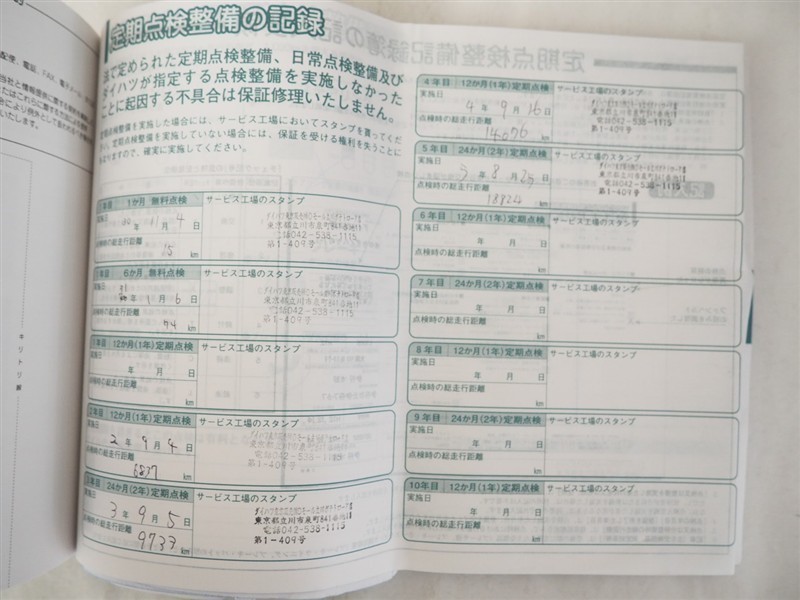 定期点検整備の記録
法で定められた定期点検整備、日常点検整備及び
ダイハツが指定する点検整備を実施しなかった
ことに起因する不具合は保証修理いたしません。
定期点検整備を実施した場合には、サービス工場においてスタンプを貰ってくだ
さい。定期点検整備を実施していない場合には、保証を受ける権利を失うことに
なりますので、確実に実施してください。
1か月 無料点検 サービス工場のスタンプ
30年11月4日
点検時の総走行距離
15 km
東京都立川市泉町841番地11
042-538-1115
第1-409号
6か月 無料点検 サービス工場のスタンプ
31
年1月6日
点検時の総走行距離
174 km
042-538-1115
第1-409号
1年目 12か月(1年)定期点検 サービス工場のスタンプ
実施日
年 月 日
点検時の総走行距離
km
2年目 12か月(1年)定期点検 サービス工場のスタンプ
実施日
2年9月4日
点検時の総走行距離
6837 km
042-538-1115
第1-409号
3年目 24か月(2年)定期点検 サービス工場のスタンプ
実施日
3年9月5日
点検時の総走行距離
9733 km
042-538-1115
第1-409号
4年目 12か月(1年)定期点検 サービス工場のスタンプ
実施日
4年9月16日
点検時の総走行距離
14076 km
042-538-1115
第1-409号
5年目 24か月(2年)定期点検 サービス工場のスタンプ
実施日
5年8月25日
点検時の総走行距離
18824 km
042-538-1115
第1-409号
6年目 12か月(1年)定期点検 サービス工場のスタンプ
実施日
年 月 日
点検時の総走行距離
km
7年目 24か月(2年)定期点検 サービス工場のスタンプ
実施日
年 月 日
点検時の総走行距離
km
8年目 12か月(1年)定期点検 サービス工場のスタンプ
実施日
年 月 日
点検時の総走行距離
km
9年目 24か月(2年)定期点検 サービス工場のスタンプ
実施日
年 月 日
点検時の総走行距離
km
10年目 12か月(1年)定期点検 サービス工場のスタンプ
実施日
年 月 日
点検時の総走行距離
km
キリトリ線